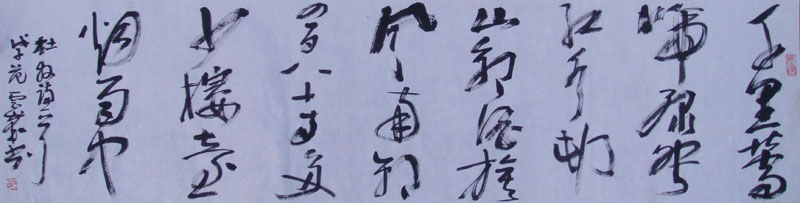 千里莺
啼绿映
红水邨
山郭酒旗
风南朝
四百八十寺多
少楼臺
烟雨中
杜牧诗一首
戊子